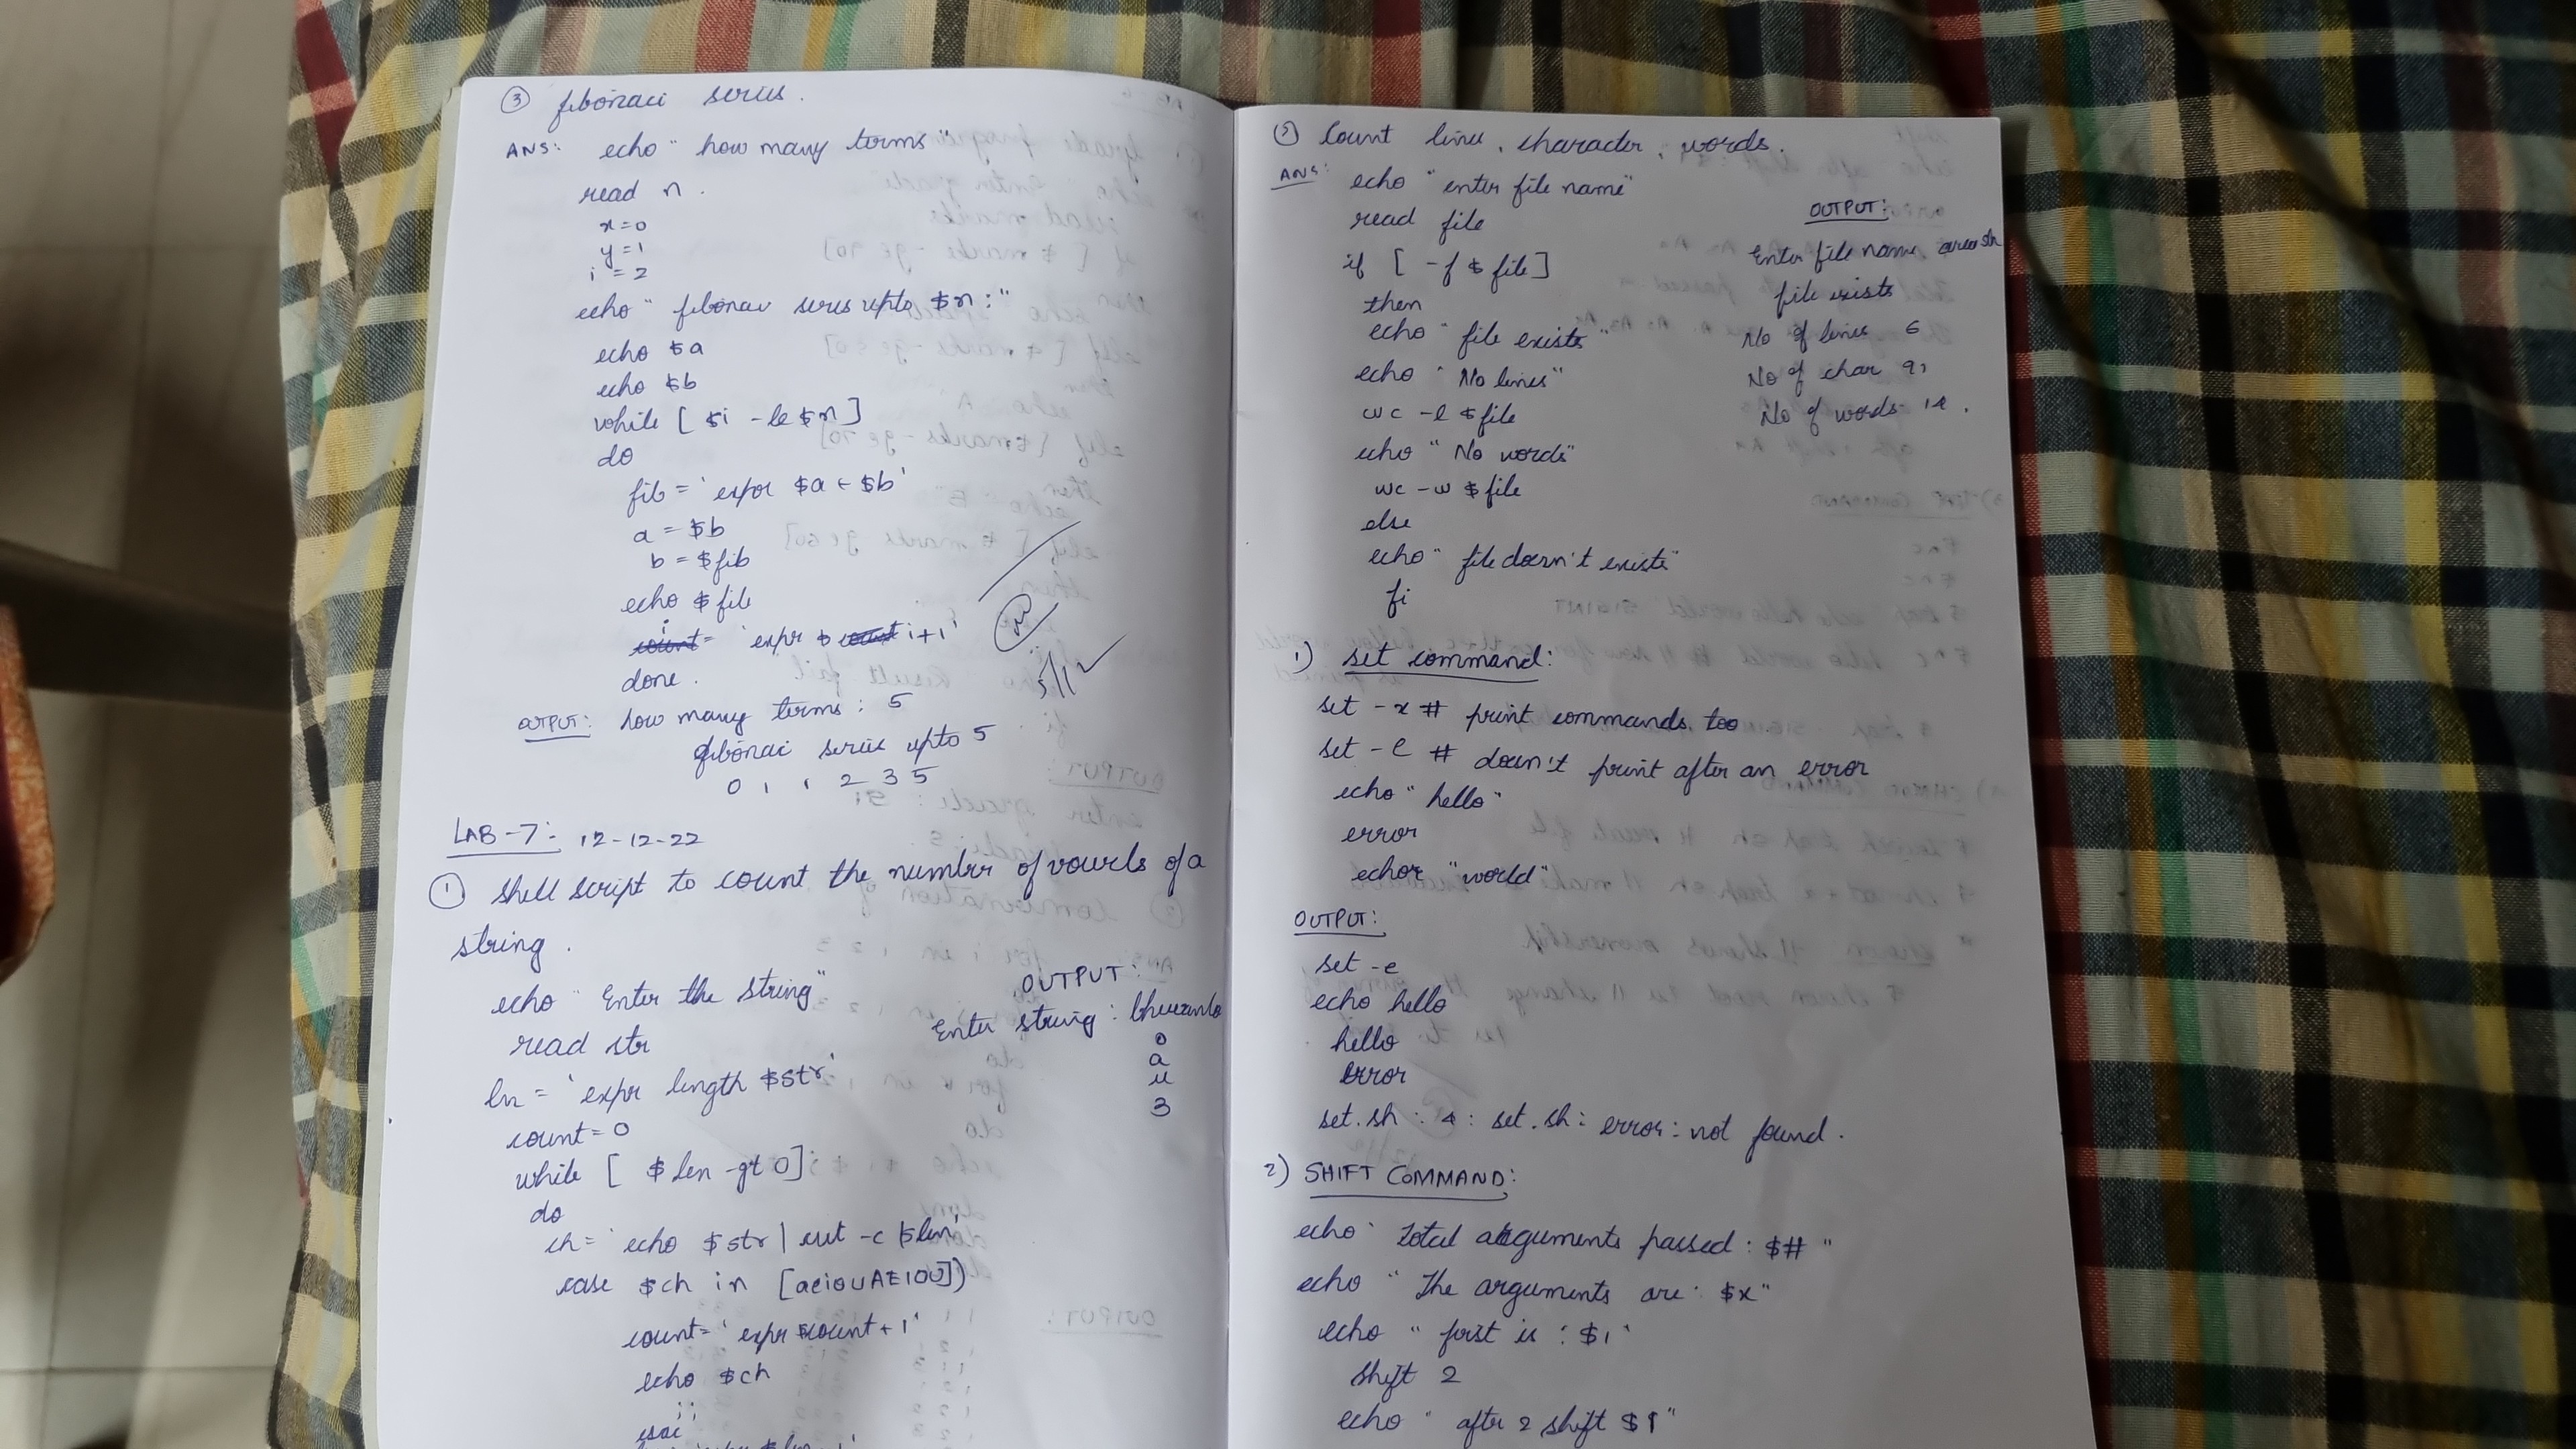 ③ fibonaci series.
ANS: echo "how many terms"
read n.
x=0
y=1
i=2
echo "fibonaci series upto $n:"
echo $a
echo $b
while [ $i -le $n ]
do
fib = `expr $a + $b`
a = $b
b = $fib
echo $fib
i = `expr $ i+1`
done.
OUTPUT: how many terms: 5
fibonaci series upto 5
0 1 1 2 3 5
LAB-7: 12-12-22
① Shell script to count the number of vowels of a
string.
echo "Enter the string"
read str
ln = `expr length $str`
count = 0
while [ $len -gt 0 ]
do
ch = `echo $str | cut -c $len`
case $ch in [aeiouAEIOU])
count = `expr $count + 1`
echo $ch
;;
OUTPUT:
Enter string:
o
a
u
3
② Count lines, character, words.
ANS: echo "enter file name"
read file
if [ -f $file ]
then
echo "file exists"
echo "No lines"
wc -l $file
echo "No words"
wc -w $file
else
echo "file doesn't exists"
fi
OUTPUT:
Enter file name
file exists
No of lines 6
No of char 91
No of words: 14.
1) set command:
set -x # print commands too
set -e # doesn't print after an error
echo "hello"
error
echo "world"
OUTPUT:
set -e
echo hello
hello
error
set.sh: 4: set.sh: error: not found.
2) SHIFT COMMAND:
echo "total arguments passed: $#"
echo "The arguments are: $*"
echo "first is: $1"
shift 2
echo "after 2 shift $1"